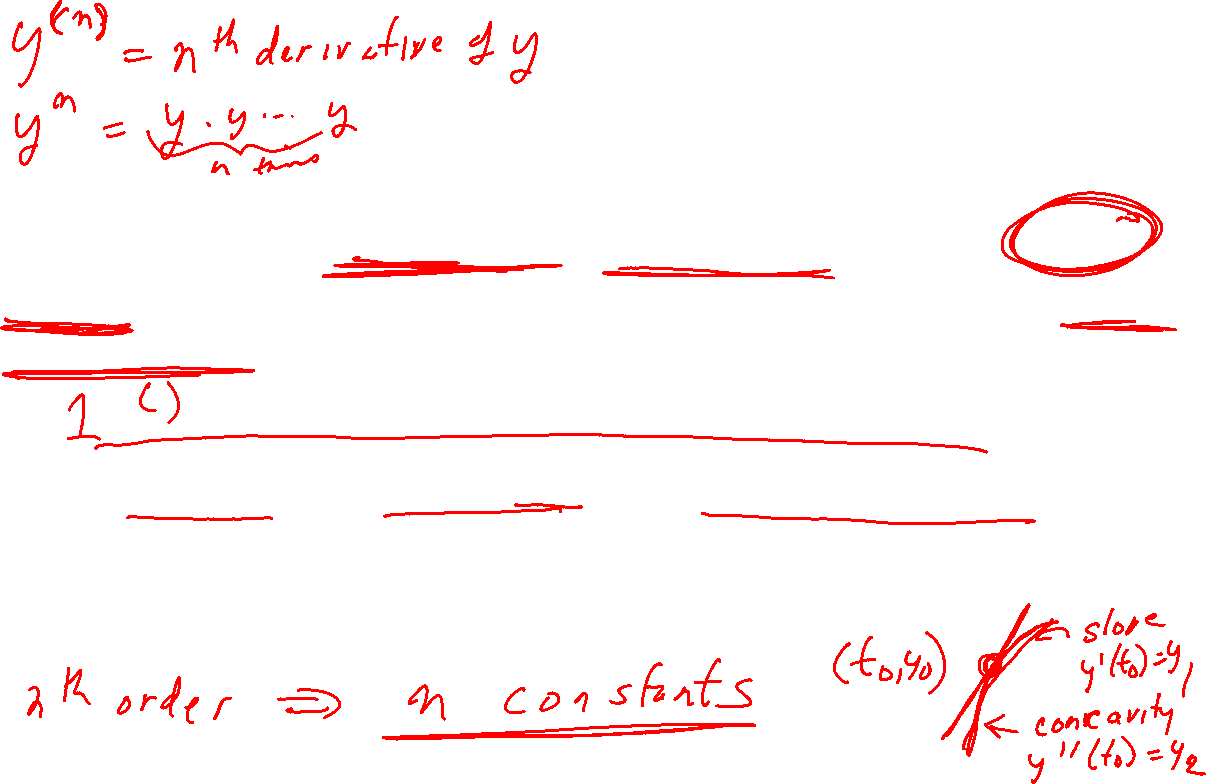 y^(n) = n^th derivative of y
y^n = y · y ... y
n terms
1 ( )
n^th order ⇒ n constants
(t_0, y_0)
← slope
y'(t_0) = y_1
← concavity
y''(t_0) = y_2